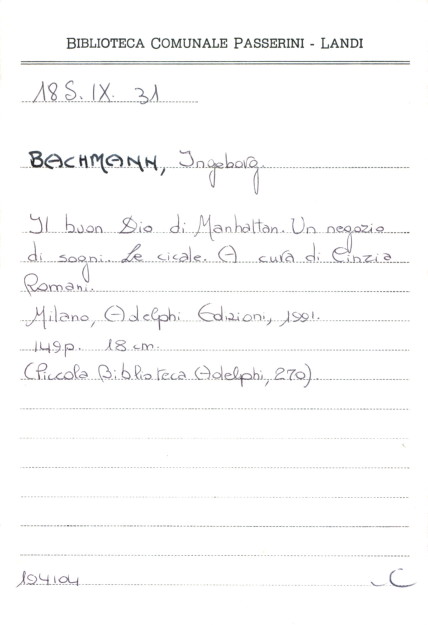 BIBLIOTECA COMUNALE PASSERINI - LANDI
18 S. IX. 31
BACHMANN, Ingeborg.
Il buon Dio di Manhattan. Un negozio
di sogni. Le cicale. A cura di Cinzia
Romani.
Milano, Adelphi Edizioni, 1991.
149p. 18 cm.
(Piccola Biblioteca Adelphi, 270).
194104 C